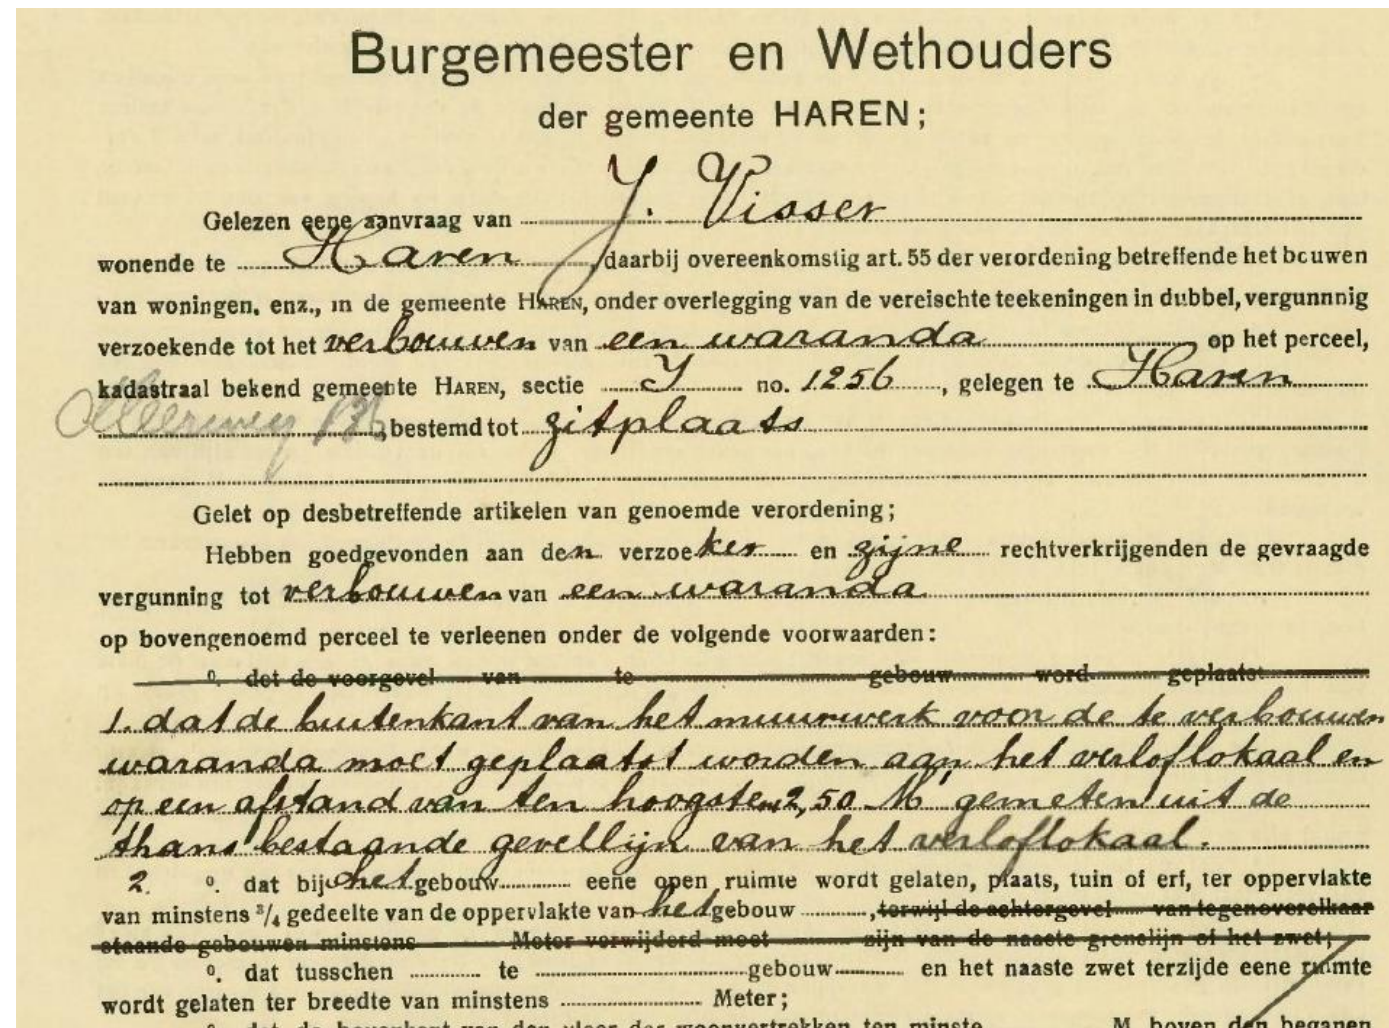 Burgemeester en Wethouders
der gemeente HAREN;
Gelezen eene aanvraag van J. Visser
wonende te Haren, daarbij overeenkomstig art. 55 der verordening betreffende het bouwen
van woningen, enz., in de gemeente HAREN, onder overlegging van de vereischte teekeningen in dubbel, vergunnnig
verzoekende tot het verbouwen van een waranda op het perceel,
kadastraal bekend gemeente HAREN, sectie J no. 1256, gelegen te Haren
Meerweg, bestemd tot zitplaats
Gelet op desbetreffende artikelen van genoemde verordening;
Hebben goedgevonden aan den verzoeker en zijne rechtverkrijgenden de gevraagde
vergunning tot verbouwen van een waranda
op bovengenoemd perceel te verleenen onder de volgende voorwaarden:
º. det de voorgevel van te gebouw word geplaatst
1. dat de buitenkant van het muurwerk voor de te verbouwen
waranda moet geplaatst worden aan het verloflokaal en
op een afstand van ten hoogsten 2,50 M gemeten uit de
thans bestaande gevellijn van het verloflokaal.
2. º. dat bij het gebouw eene open ruimte wordt gelaten, plaats, tuin of erf, ter oppervlakte
van minstens 3/4 gedeelte van de oppervlakte van het gebouw, terwijl de achtergevel van tegenoverelkaar
staande gebouwen minstens Meter verwijderd moet zijn van de naaste grenslijn of het zwet;
º. dat tusschen te gebouw en het naaste zwet terzijde eene ruimte
wordt gelaten ter breedte van minstens Meter;
º. dat de bovenkant van den vloer der woonvertrekken ten minste M. boven den beganen